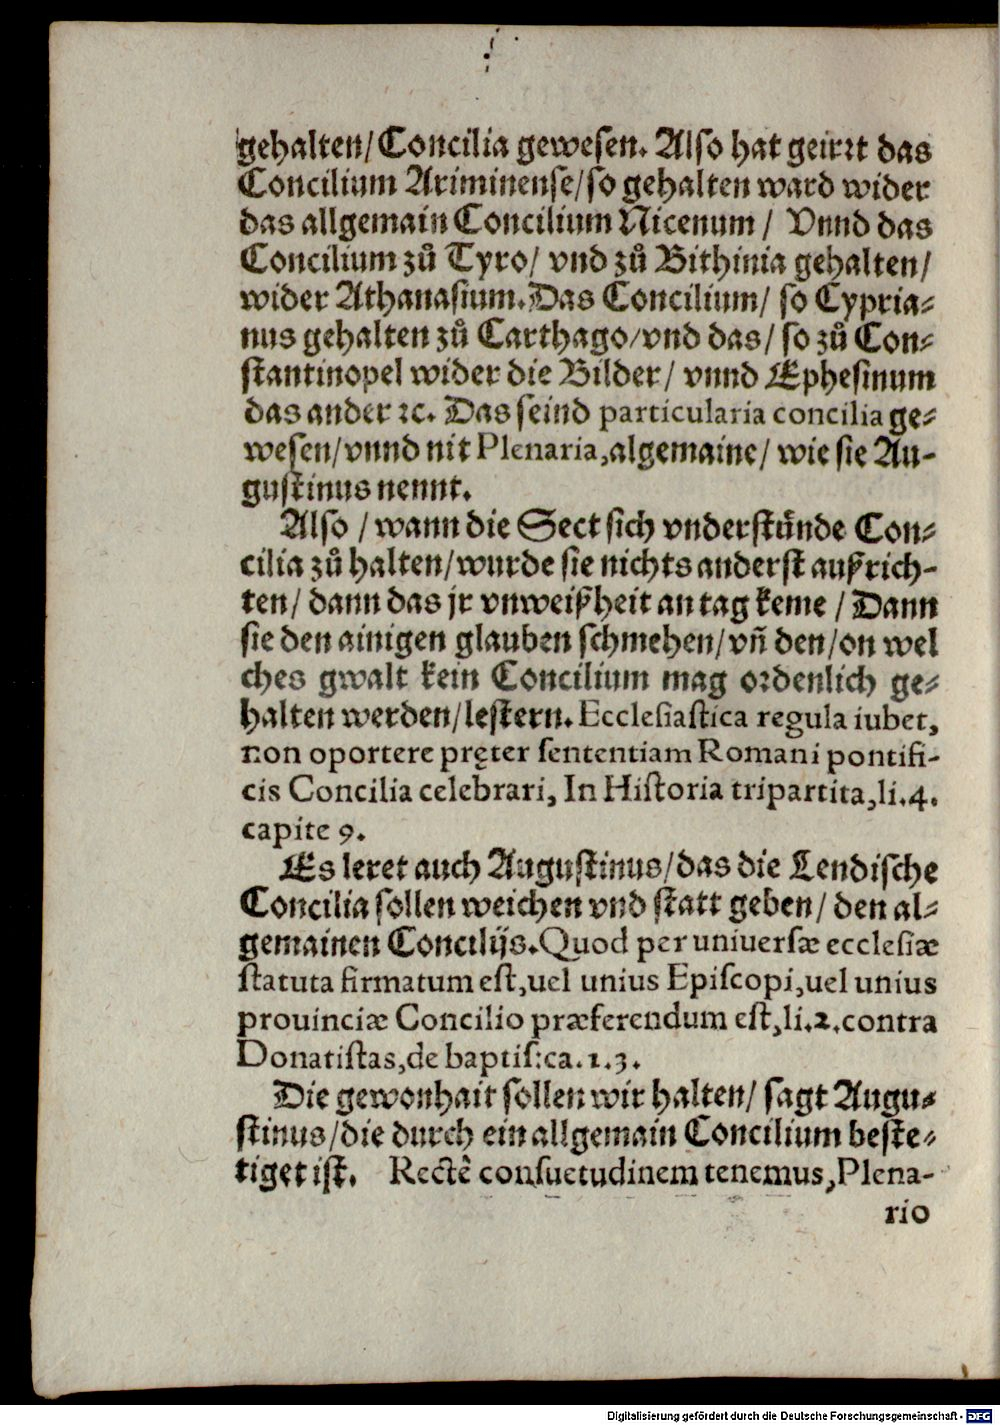 gehalten/Concilia gewesen. Also hat geirꝛt das
Concilium Ariminense/so gehalten ward wider
das allgemain Concilium Nicenum / Vnnd das
Concilium zů Tyro/ vnd zů Bithinia gehalten/
wider Athanasium. Das Concilium/ so Cypria⸗
nus gehalten zů Carthago/vnd das/ so zů Con⸗
stantinopel wider die Bilder/ vnnd Ephesinum
das ander ꝛc. Das seind particularia concilia ge⸗
wesen/vnnd nit Plenaria,algemaine/ wie sie Au-
gustinus nennt.
Also / wann die Sect sich vnderstůnde Con⸗
cilia zů halten/wurde sie nichts anderst außrich-
ten/ dann das jr vnweißheit an tag keme / Dann
sie den ainigen glauben schmehen/vñ den/on wel
ches gwalt kein Concilium mag oꝛdenlich ge⸗
halten werden/lestern. Ecclesiastica regula iubet,
non oportere pręter sententiam Romani pontifi-
cis Concilia celebrari, In Historia tripartita,li.4.
capite 9.
Es leret auch Augustinus/das die Lendische
Concilia sollen weichen vnd statt geben/ den al⸗
gemainen Concilijs. Quod per universæ ecclesiæ
statuta firmatum est,uel unius Episcopi,uel unius
prouinciæ Concilio præferendum est,li.2.contra
Donatistas,de baptis:ca.1.3.
Die gewonhait sollen wir halten/ sagt Augu⸗
stinus/die durch ein allgemain Concilium beste⸗
tiget ist. Rectè consuetudinem tenemus,Plena-
rio
Digitalisierung gefördert durch die Deutsche Forschungsgemeinschaft - DFG